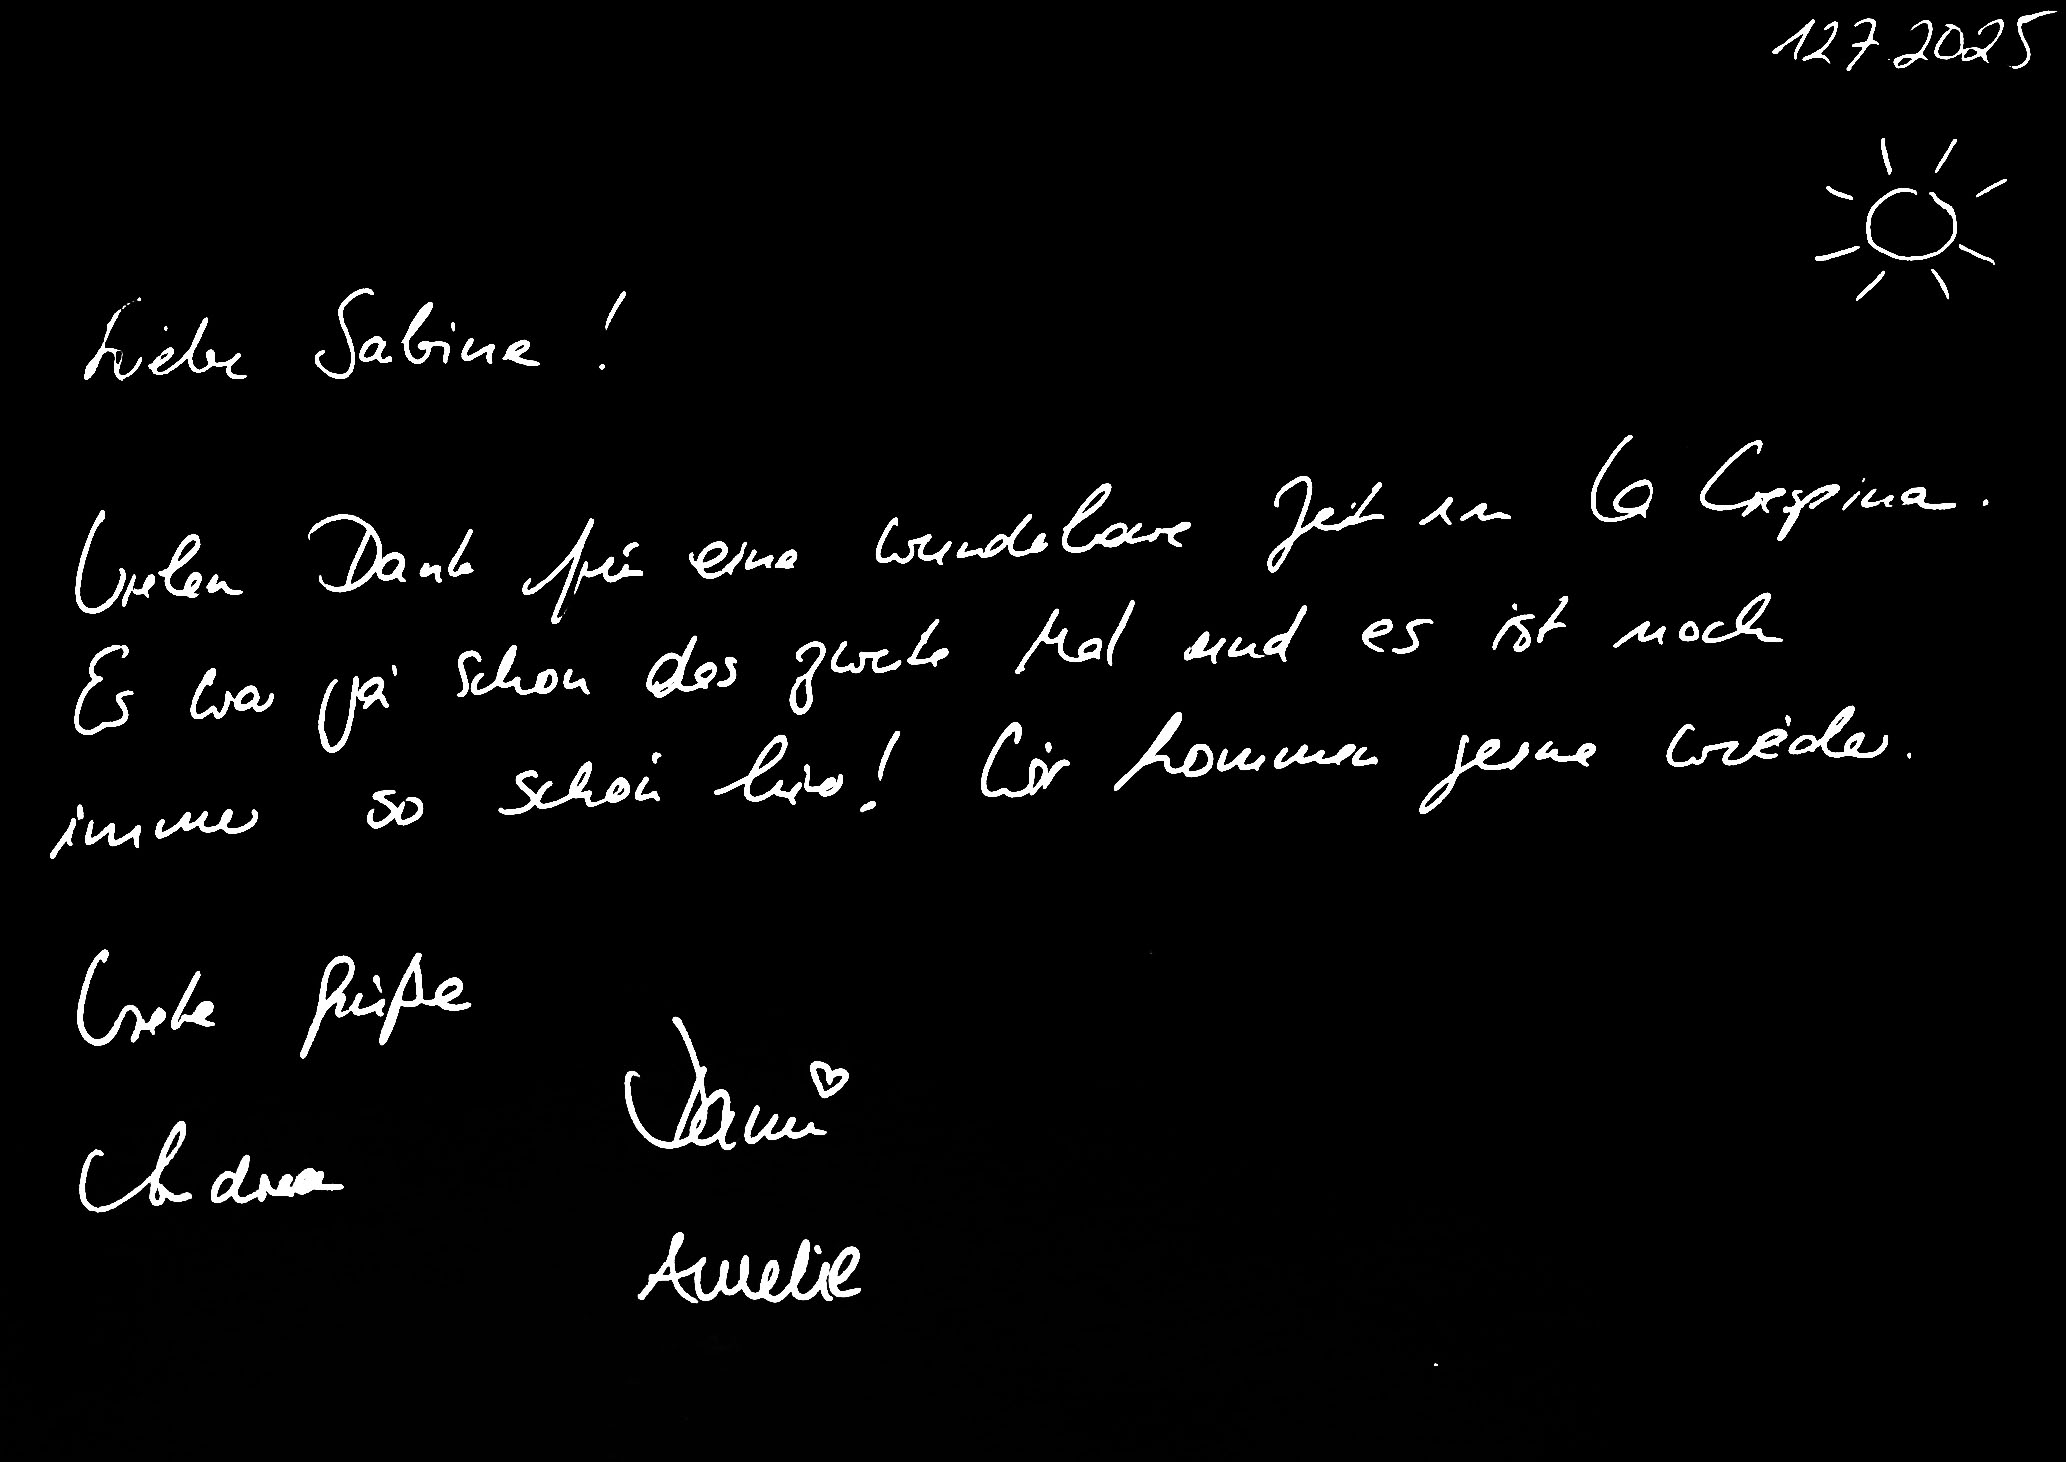 12.7.2025
Liebe Sabine!
Vielen Dank für eine wunderbare Zeit in La Crespina.
Es war ja schon das zweite Mal und es ist noch
immer so schön hier! Wir kommen gerne wieder.
Liebe Grüße
Danni
Andrea
Amelie